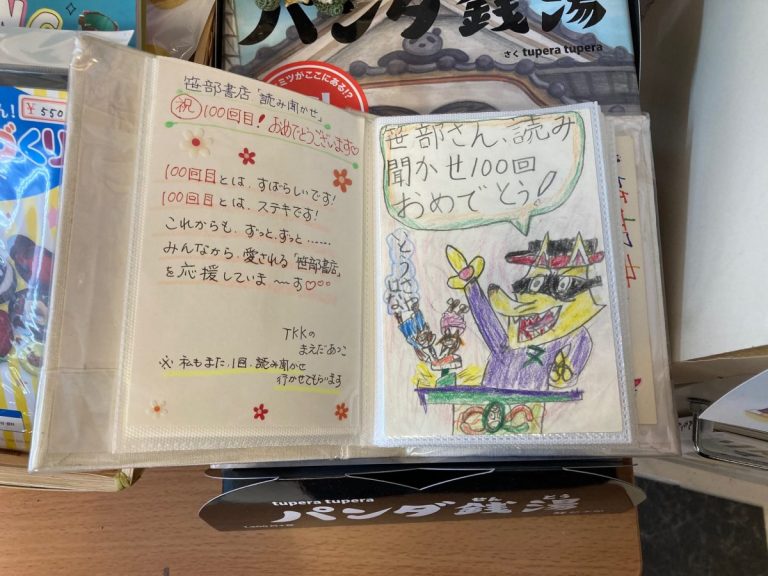 パンダ銭湯
さく tupera tupera
ミツがここにある!?
¥550
笹部書店「読み聞かせ」
祝 100回目! おめでとうございます♡
100回目とは、すばらしいです!
100回目とは、ステキです!
これからも、ずっと、ずっと……
みんなから、愛される「笹部書店」
を応援していま〜す♡
TKKの
まえだあつこ
※ 私もまた、1回、読み聞かせ
行かせてもらいます
笹部さん、読み
聞かせ100回
おめでとう!
tupera tupera
せんとう
パンダ銭湯